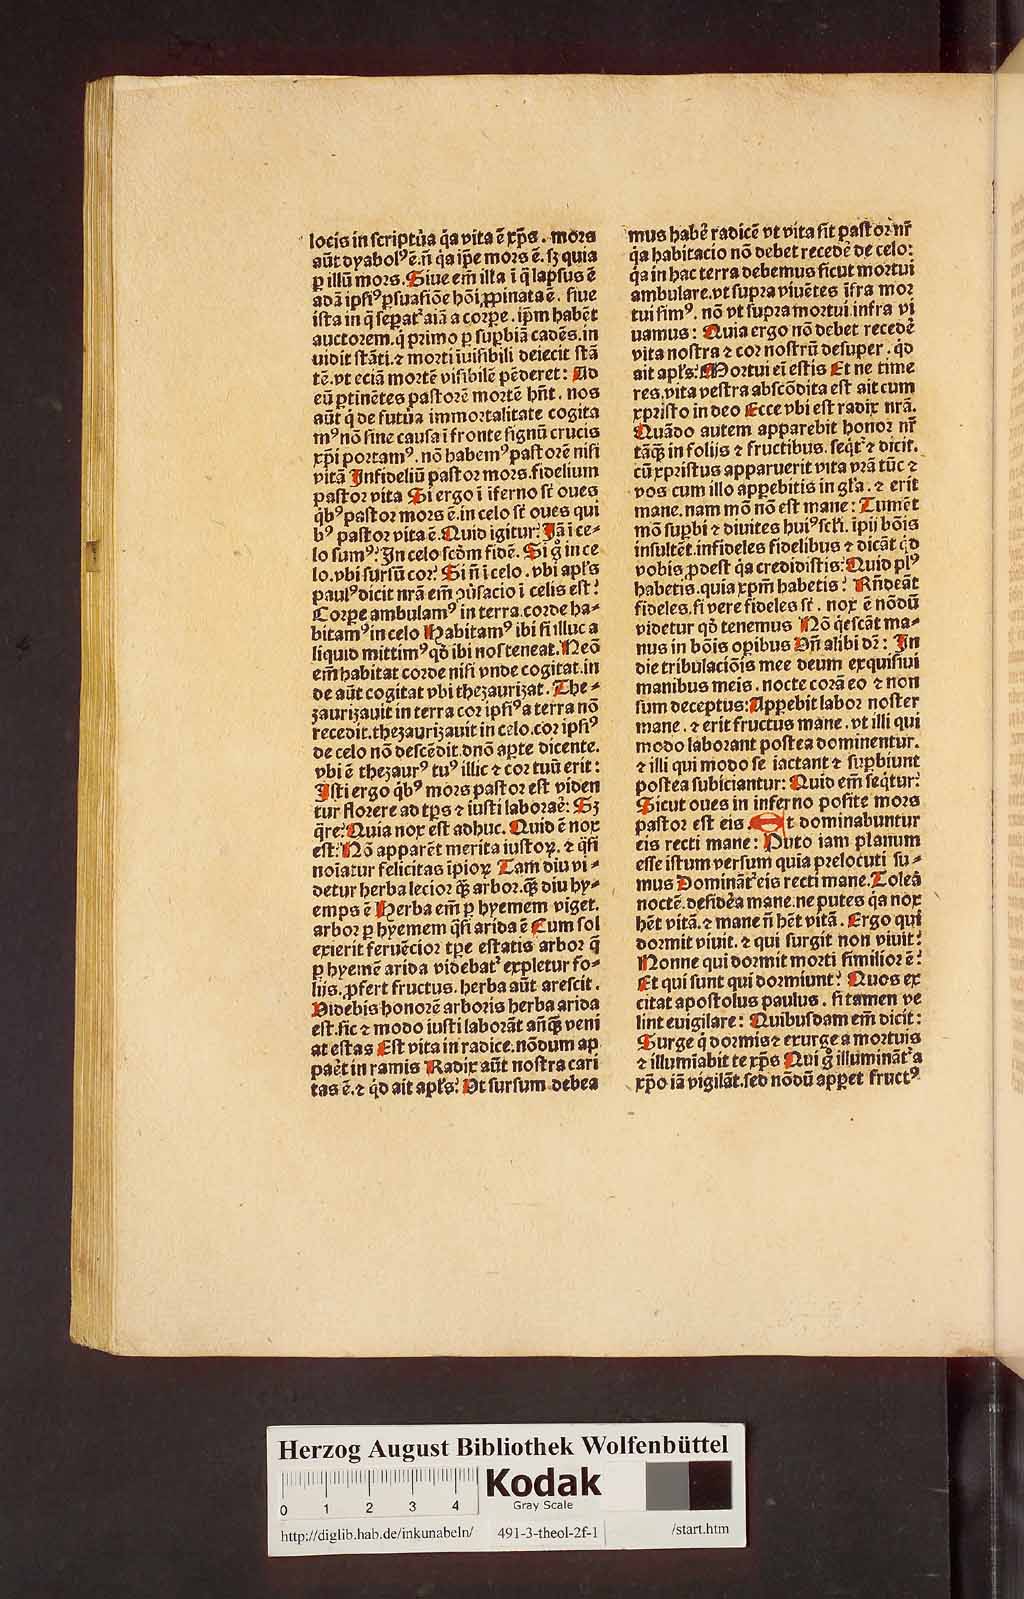 locis in scriptůa q̇a vita ē xp̄s . mors
aūt dyabolꝰ ē.n̄ q̇a ip̄e mors ē. sꝫ quia
ꝑ illū mors. Siue em̄ illa ī q̇ lapsus ē
adā ipsiꝰ ꝑsuasiōe hōi ꝓpinata ē. siue
ista in q̇ seꝑat᷑ aīa a corꝑe. ip̄m habēt
auctorem.q̇ primo ꝑ suꝑbiā cadēs.in
uidit stāti.⁊ morti īuisibili deiecit stā
tē.vt eciā mortē visibilē pēderet: Ad
eū ꝑtinētes pastorē mortē hn̄t. nos
aūt q̇ de futůa immortalitate cogita
mꝰ nō sine causa ī fronte signū crucis
xp̄i portamꝰ. nō habemꝰ pastorē nisi
vitā Infideliū pastor mors. fidelium
pastor vita Si ergo ī īferno st̄ oues
q̇bꝰ pastor mors ē. in celo st̄ oues qui
bꝰ pastor vita ē. Quid igitur? Iā ī ce⸗
lo sumꝰ? In celo scd̄m fidē. Si g̊ in ce
lo.vbi sursū cor? Si n̄ ī celo . vbi apl̄s
paulꝰ dicit nrā em̄ ꝯůsacio ī celis est?
Corꝑe ambulamꝰ in terra.corde ha⸗
bitamꝰ in celo Habitamꝰ ibi si illuc a
liquid mittimꝰ qd̓ ibi nos teneat. Neō
em̄ habitat corde nisi vnde cogitat.in
de aūt cogitat vbi thezaurizat. The⸗
zaurizauit in terra cor ipsiꝰ a terra nō
recedit.thezaurizauit in celo.cor ipsiꝰ
de celo nō descēdit.dnō aꝑte dicente.
vbi ē thezaurꝰ tuꝰ illic ⁊ cor tuū erit:
Isti ergo q̇bꝰ mors pastor est viden
tur florere ad tp̄s ⁊ iusti laboraē: Sꝫ
q̄re? Quia nox est adhuc. Quid ē nox
est? Nō apparēt merita iustoꝝ. ⁊ q̇si
noīatur felicitas īpioꝝ Tam diu vi⸗
detur herba lecior q̄ꝫ arbor.q̄ꝫ diu hy⸗
emps ē Herba em̄ ꝑ hyemem viget.
arbor ꝑ hyemem q̇si arida ē Cum sol
exierit feruēcior tꝑe estatis arbor q̄
ꝑ hyemē arida videbat᷑ expletur fo⸗
lijs. ꝓfert fructus. herba aūt arescit.
Videbis honorē arboris herba arida
est.sic ⁊ modo iusti laborāt añq̄ꝫ veni
at estas Est vita in radice.nōdum ap
paēt in ramis Radix aūt nostra cari
tas ē.⁊ q̇d ait apl̄s? Vt sursum debea
mus habē radicē vt vita sit pastor nr̄
q̇a habitacio nō debet recedē de celo:
q̇a in hac terra debemus sicut mortui
ambulare.vt supra viuētes īfra mor
tui simꝰ. nō vt supra mortui infra vi
uamus: Quia ergo nō debet recedē
vita nostra ⁊ cor nostrū desuper . q̇d
ait apl̄s? Mortui eī estis Et ne time
res.vita vestra abscōdita est ait cum
xpristo in deo Ecce vbi est radix nrā.
Quādo autem apparebit honor nr̄
tāq̄ꝫ in folijs ⁊ fructibus. seq̇t᷑ ⁊ dicit.
cū xpristus apparuerit vita vrā tūc ⁊
vos cum illo apꝑebitis in gl̄a. ⁊ erit
mane. nam mō nō est mane: Tumēt
mō suꝑbi ⁊ diuites huiꝰ sc̄li. īpij bōis
insultēt.infideles fidelibus ⁊ dicāt q̇d
vobis ꝓdest q̇a credidistis? Quid plꝰ
habetis.quia xp̄m habetis? Rn̄deāt
fideles.si vere fideles st̄ . nox ē nōdū
videtur qd̓ tenemus Nō q̇escāt ma⸗
nus in bōis oꝑibus Vn̄ alibi dr̄: In
die tribulaciōis mee deum exquisiui
manibus meis . nocte corā eo ⁊ non
sum deceptus: Apꝑebit labor noster
mane . ⁊ erit fructus mane . vt illi qui
modo laborant postea dominentur.
⁊ illi qui modo se iactant ⁊ suꝑbiunt
postea subiciantur: Quid em̄ seq̇tur?
Sicut oues in inferno posite mors
pastor est eis Et dominabuntur
eis recti mane: Puto iam planum
esse istum versum quia prelocuti su⸗
mus Domināt᷑ eis recti mane. Toleā
noctē.desideā mane.ne putes q̇a nox
hēt vitā.⁊ mane n̄ hēt vitā. Ergo qui
dormit viuit. ⁊ qui surgit non viuit?
Nonne qui dormit morti similior ē?
Et qui sunt qui dormiunt? Quos ex
citat apostolus paulus . si tamen ve
lint euigilare: Quibusdam em̄ dicit:
Surge q̇ dormis ⁊ exurge a mortuis
⁊ illumīabit te xp̄s Qui g̊ illumināt᷑ a
xp̄o iā vigilāt.sed nōdū apꝑet fructꝰ
Herzog August Bibliothek Wolfenbüttel
0 1 2 3 4
Kodak
Gray Scale
http://diglib.hab.de/inkunabeln/ 491-3-theol-2f-1 /start.htm